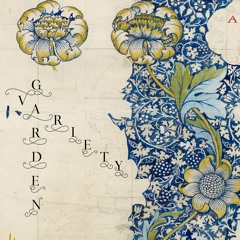 GARDEN
VARIETY
A